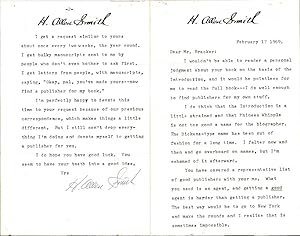 H. Allen Smith
I get a request similar to yours
about once every two weeks, the year round.
I get bulky manuscripts sent to me by
people who don't even bother to ask first.
I get letters from people, with manuscripts,
saying, "Okay, pal, you've made yours--now
find a publisher for my book."
I'm perfectly happy to devote this
time to your request because of our previous
correspondence, which makes things a little
different. But I still can't drop every-
thing I'm doing and devote myself to getting
a publisher for you.
I do hope you have good luck. You
seem to have your teeth into a good idea.
Yrs
H. Allen Smith
H. Allen Smith
February 17 1969
Dear Mr.
I wouldn't be able to render a personal
judgment about your book on the basis of the
Introduction, and it would be pointless for
me to read the full book--I
to find publishers for my own stuff.
I do think that the Introduction is a
little strained and that Phineas Whipple
is not too good a name for the biographer.
The Dickens-type name has been out of
fashion for a long time. I falter now and
then and go overboard on names, but I'm
ashamed of it afterward.
You have covered a representative list
of good publishers with your no. What
you need is an agent, and getting a good
agent is harder than getting a publisher.
The best way would be to go to New York
and make the rounds and I realize that is
sometimes impossible.